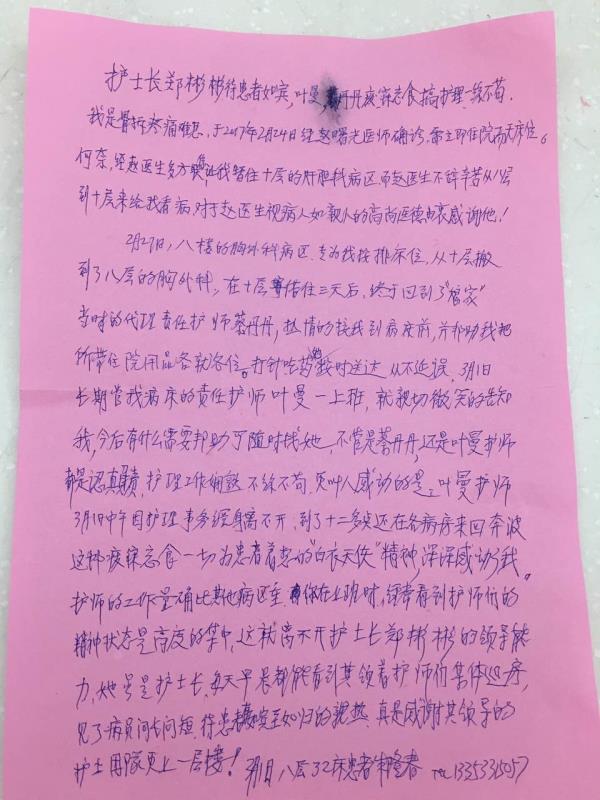 护士长郑彬彬待患者如宾,叶曼,蔡丹丹废寝忘食搞护理一丝不苟.
我是骨折疼痛难忍,于2017年2月24日经赵曙光医师确诊,需立即住院而无床位。
何奈,经赵医生多方联,让我暂住十层的肝胆科病区,而赵医生不辞辛苦从八层
到十层来给我看病,对于赵医生视病人如亲人的高尚医德由衷感谢他!
2月27日,八楼的胸外科病区,专为我按排床位,从十层搬
到了八层的胸外科,在十层借住三天后,终于回到了"啓家"
当时的代理责任护师蔡丹丹,热情的接我到病床前,并帮助我把
所带住院用品各就各位。打针吃药按时送达,从不延误,3月1日
长期管我病床的责任护师叶曼一上班,就亲切微笑的告知
我,今后有什么需要帮助可随时找她,不管是蔡丹丹,还是叶曼护师
都是认真负责,护理工作娴熟,一丝不苟,更叫人感动的是,叶曼护师
3月1日中午因护理事务缠身离不开,到了十二多点还在各病房来回奔波
这种废寝忘食一切为患者着想的"白衣天使"精神,深深感动了我。
护师的工作量确比其他病区重,你在上班时,经常看到护师们的
精神状态是高度的集中,这就离不开护士长郑彬彬的领导能
力,她虽是护士长,每天早晨都能看到其领着护师们集体巡房,
见了病员问长问短,待患者如宾至如归的視热,真是感谢其领导的
护士团队更上一层楼!3月1日 八层32床患者 春 Tel 13353315057